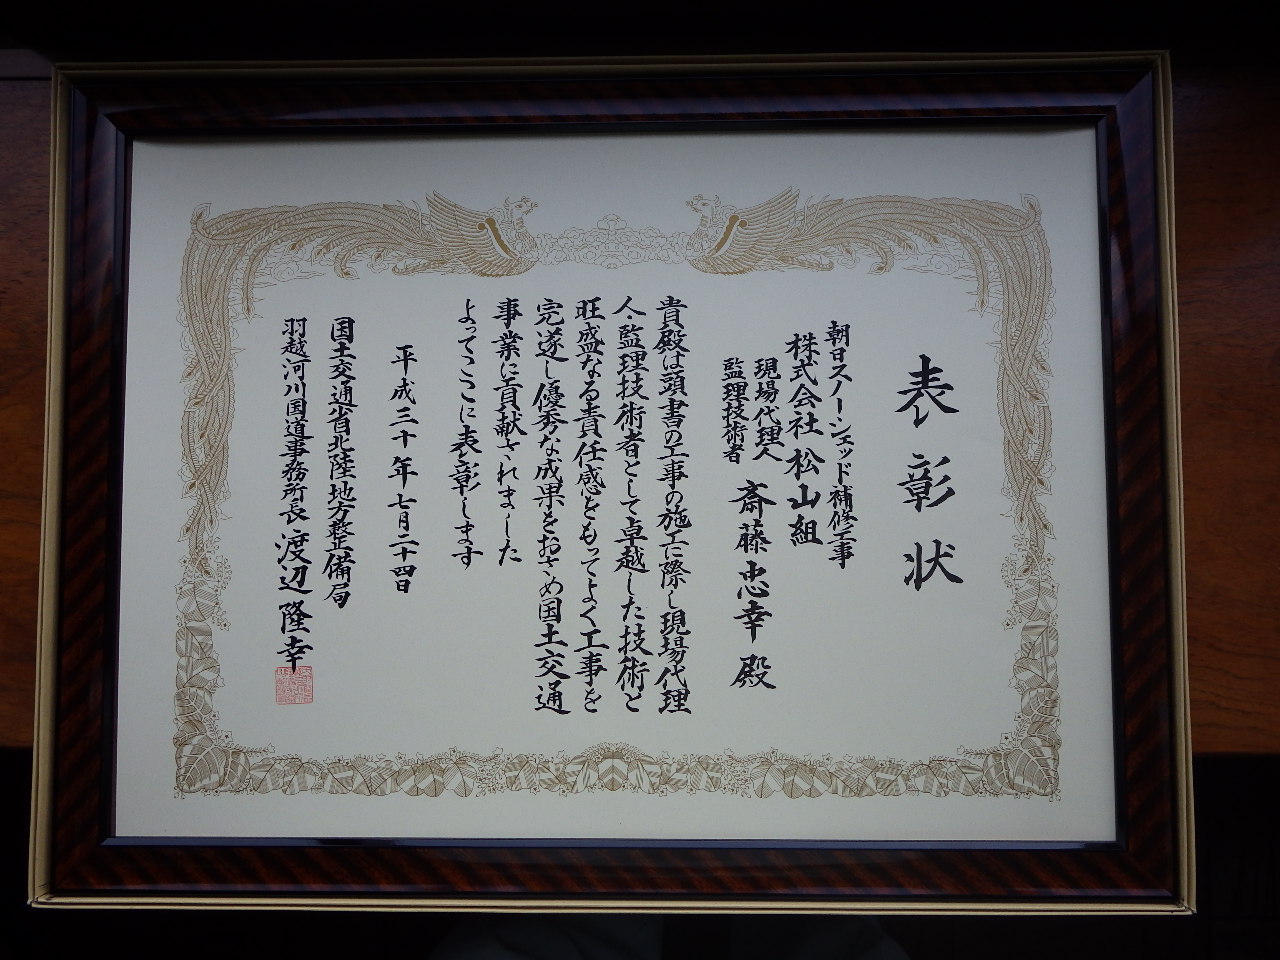 表彰状
朝日スノーシェッド補修工事
株式会社 松山組
現場代理人
監理技術者
斎藤忠幸殿
貴殿は頭書の工事の施工に際し現場代理
人・監理技術者として卓越した技術と
旺盛なる責任感をもってよく工事を
完遂し優秀な成果をおさめ国土交通
事業に貢献されました
よってここに表彰します
平成三十年七月二十四日
国土交通省北陸地方整備局
羽越河川国道事務所長 渡辺隆幸